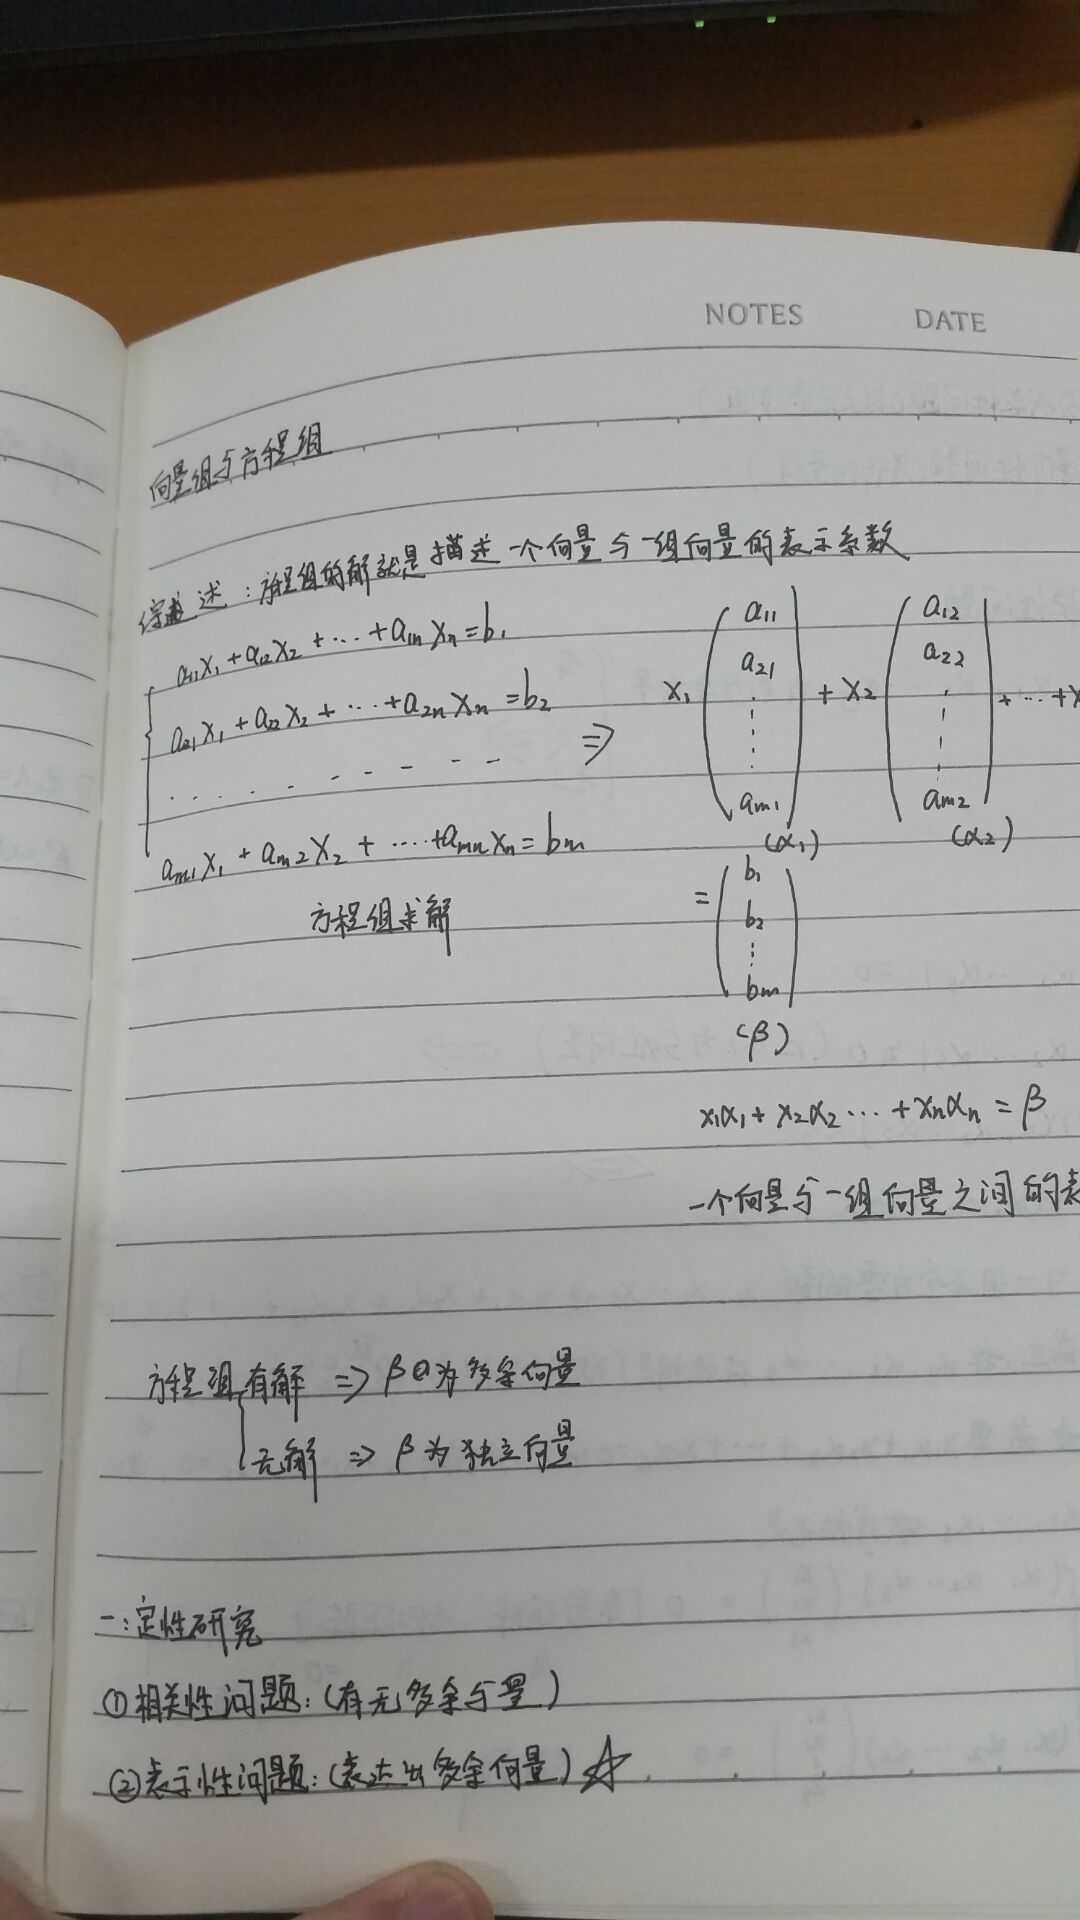 NOTES DATE
向量组与方程组
综述：方程组的解就是描述一个向量与一组向量的表示系数
a₁₁x₁+a₁₂x₂+⋯+a₁ₙxₙ=b₁
a₂₁x₁+a₂₂x₂+⋯+a₂ₙxₙ=b₂
. . . . . . - - - - -
aₘ₁x₁+aₘ₂x₂+⋯+aₘₙxₙ=bₘ
方程组求解
⇒ x₁ (a₁₁ a₂₁ ⋮ aₘ₁) + x₂ (a₁₂ a₂₂ ⋮ aₘ₂) + ⋯ +
(α₁) (α₂)
= (b₁ b₂ ⋮ bₘ)
(β)
x₁α₁+x₂α₂⋯+xₙαₙ=β
一个向量与一组向量之间的表
方程组有解 ⇒ β为多余向量
无解 ⇒ β为独立向量
一:定性研究
①相关性问题:(有无多余向量)
②表示性问题:(表达出多余向量)☆